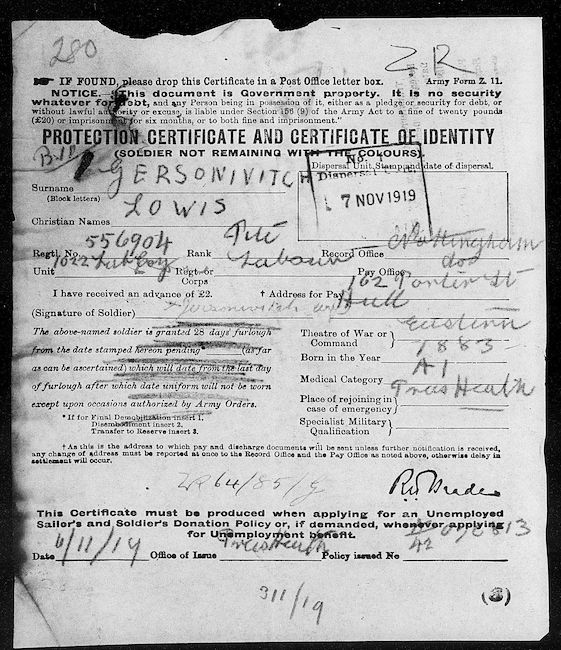 280
ZR
IF FOUND, please drop this Certificate in a Post Office letter box. Army Form Z. 11.
NOTICE. This document is Government property. It is no security
whatever for debt, and any Person being in possession of it, either as a pledge or security for debt, or
without lawful authority or excuse, is liable under Section 156 (9) of the Army Act to a fine of twenty pounds
(£20) or imprisonment for six months, or to both fine and imprisonment."
PROTECTION CERTIFICATE AND CERTIFICATE OF IDENTITY
(SOLDIER NOT REMAINING WITH THE COLOURS)
Dispersal Unit Stamp and date of dispersal.
No.
Dispersal
7 NOV 1919
Surname GERSONIVITCH
(Block letters)
Christian Names LOWIS
Regtl. No. 556904 Rank Pte Record Office Nottingham
Unit 1022 Lab Coy Regt. or Corps Labour Pay Office do
I have received an advance of £2. † Address for Pay 162 Porter St
Hull
(Signature of Soldier)
The above-named soldier is granted 28 days furlough
from the date stamped hereon pending (as far
as can be ascertained) which will date from the last day
of furlough after which date uniform will not be worn
except upon occasions authorized by Army Orders.
* If for Final Demobilization insert 1.
Disembodiment insert 2.
Transfer to Reserve insert 3.
Theatre of War or Command Eastern
Born in the Year 1883
Medical Category A1
Place of rejoining in case of emergency Prees Heath
Specialist Military Qualification
† As this is the address to which pay and discharge documents will be sent unless further notification is received,
any change of address must be reported at once to the Record Office and the Pay Office as noted above, otherwise delay in
settlement will occur.
64/85/g
This Certificate must be produced when applying for an Unemployed
Sailor's and Soldier's Donation Policy or, if demanded, whenever applying
for Unemployment benefit.
Date 6/11/19 Office of Issue Prees Heath Policy issued No
311/19